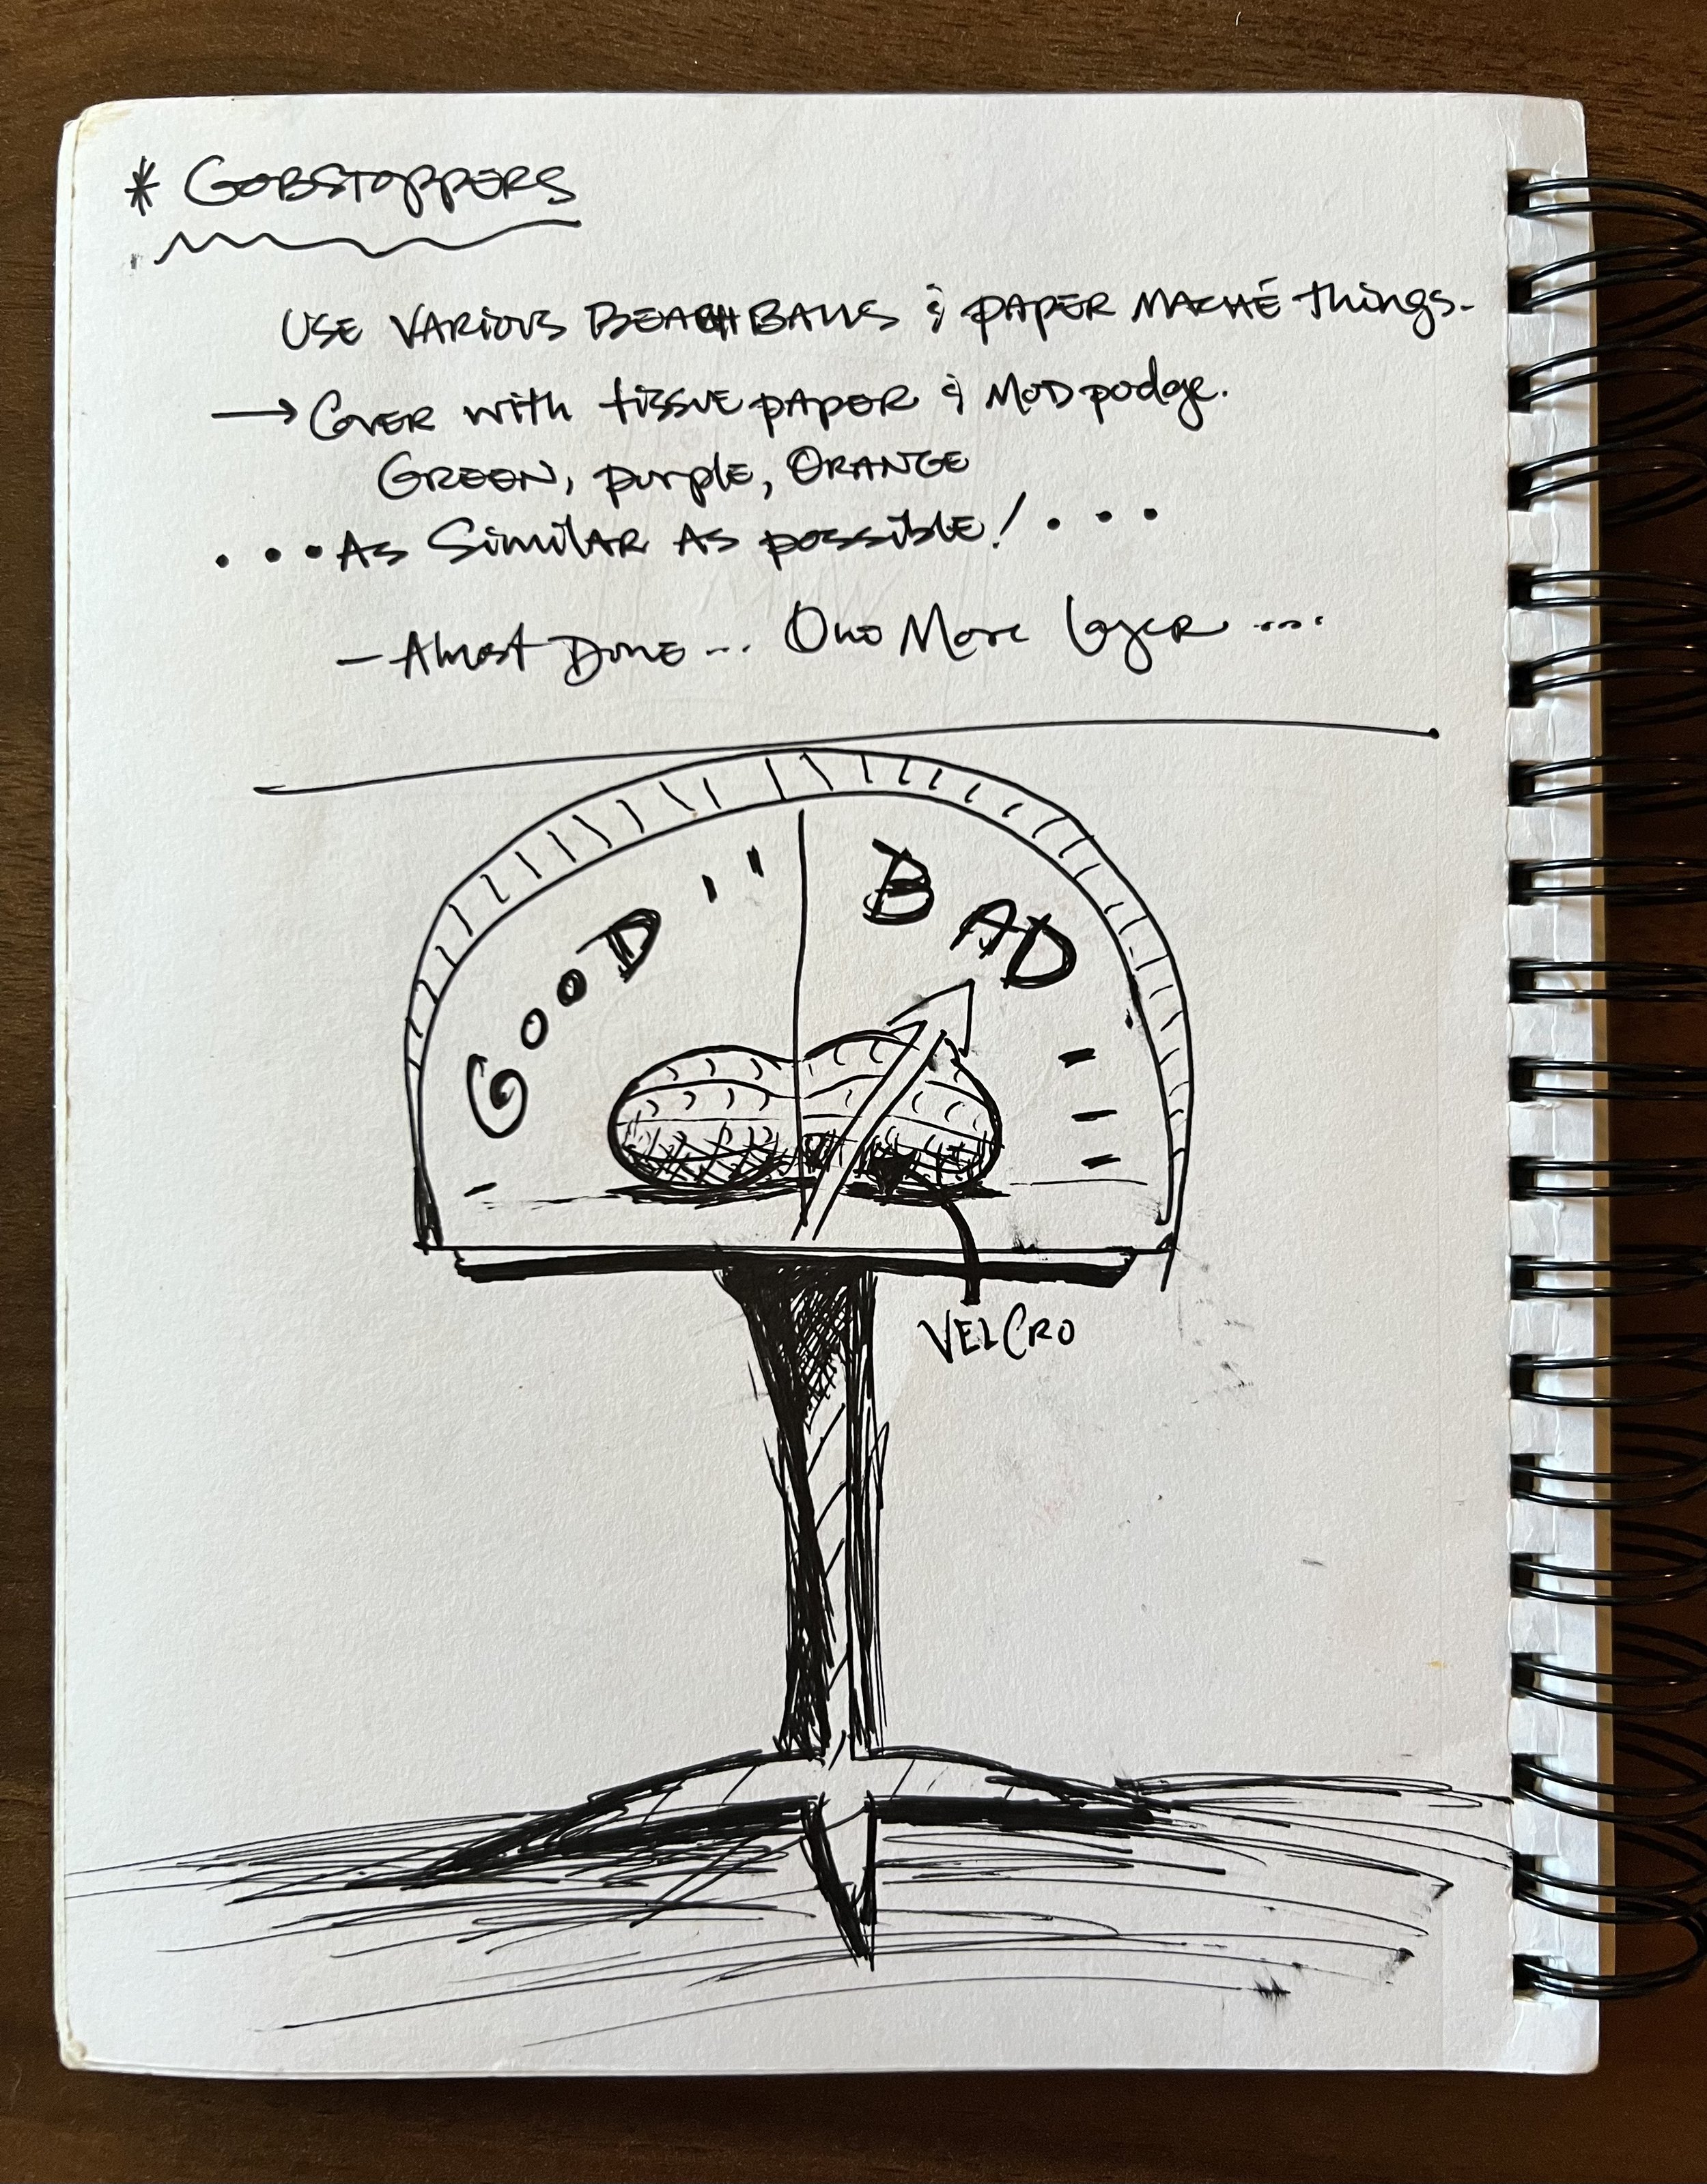 * GOBSTOPPERS
USE VARIOUS BEACH BALLS & PAPER MACHÉ things.
→ COVER with tissue PAPER & MOD podge.
GREEN, purple, ORANGE
... As Similar As possible! ...
- Almost Done... One More layer ....
GOOD
BAD
VELCRO